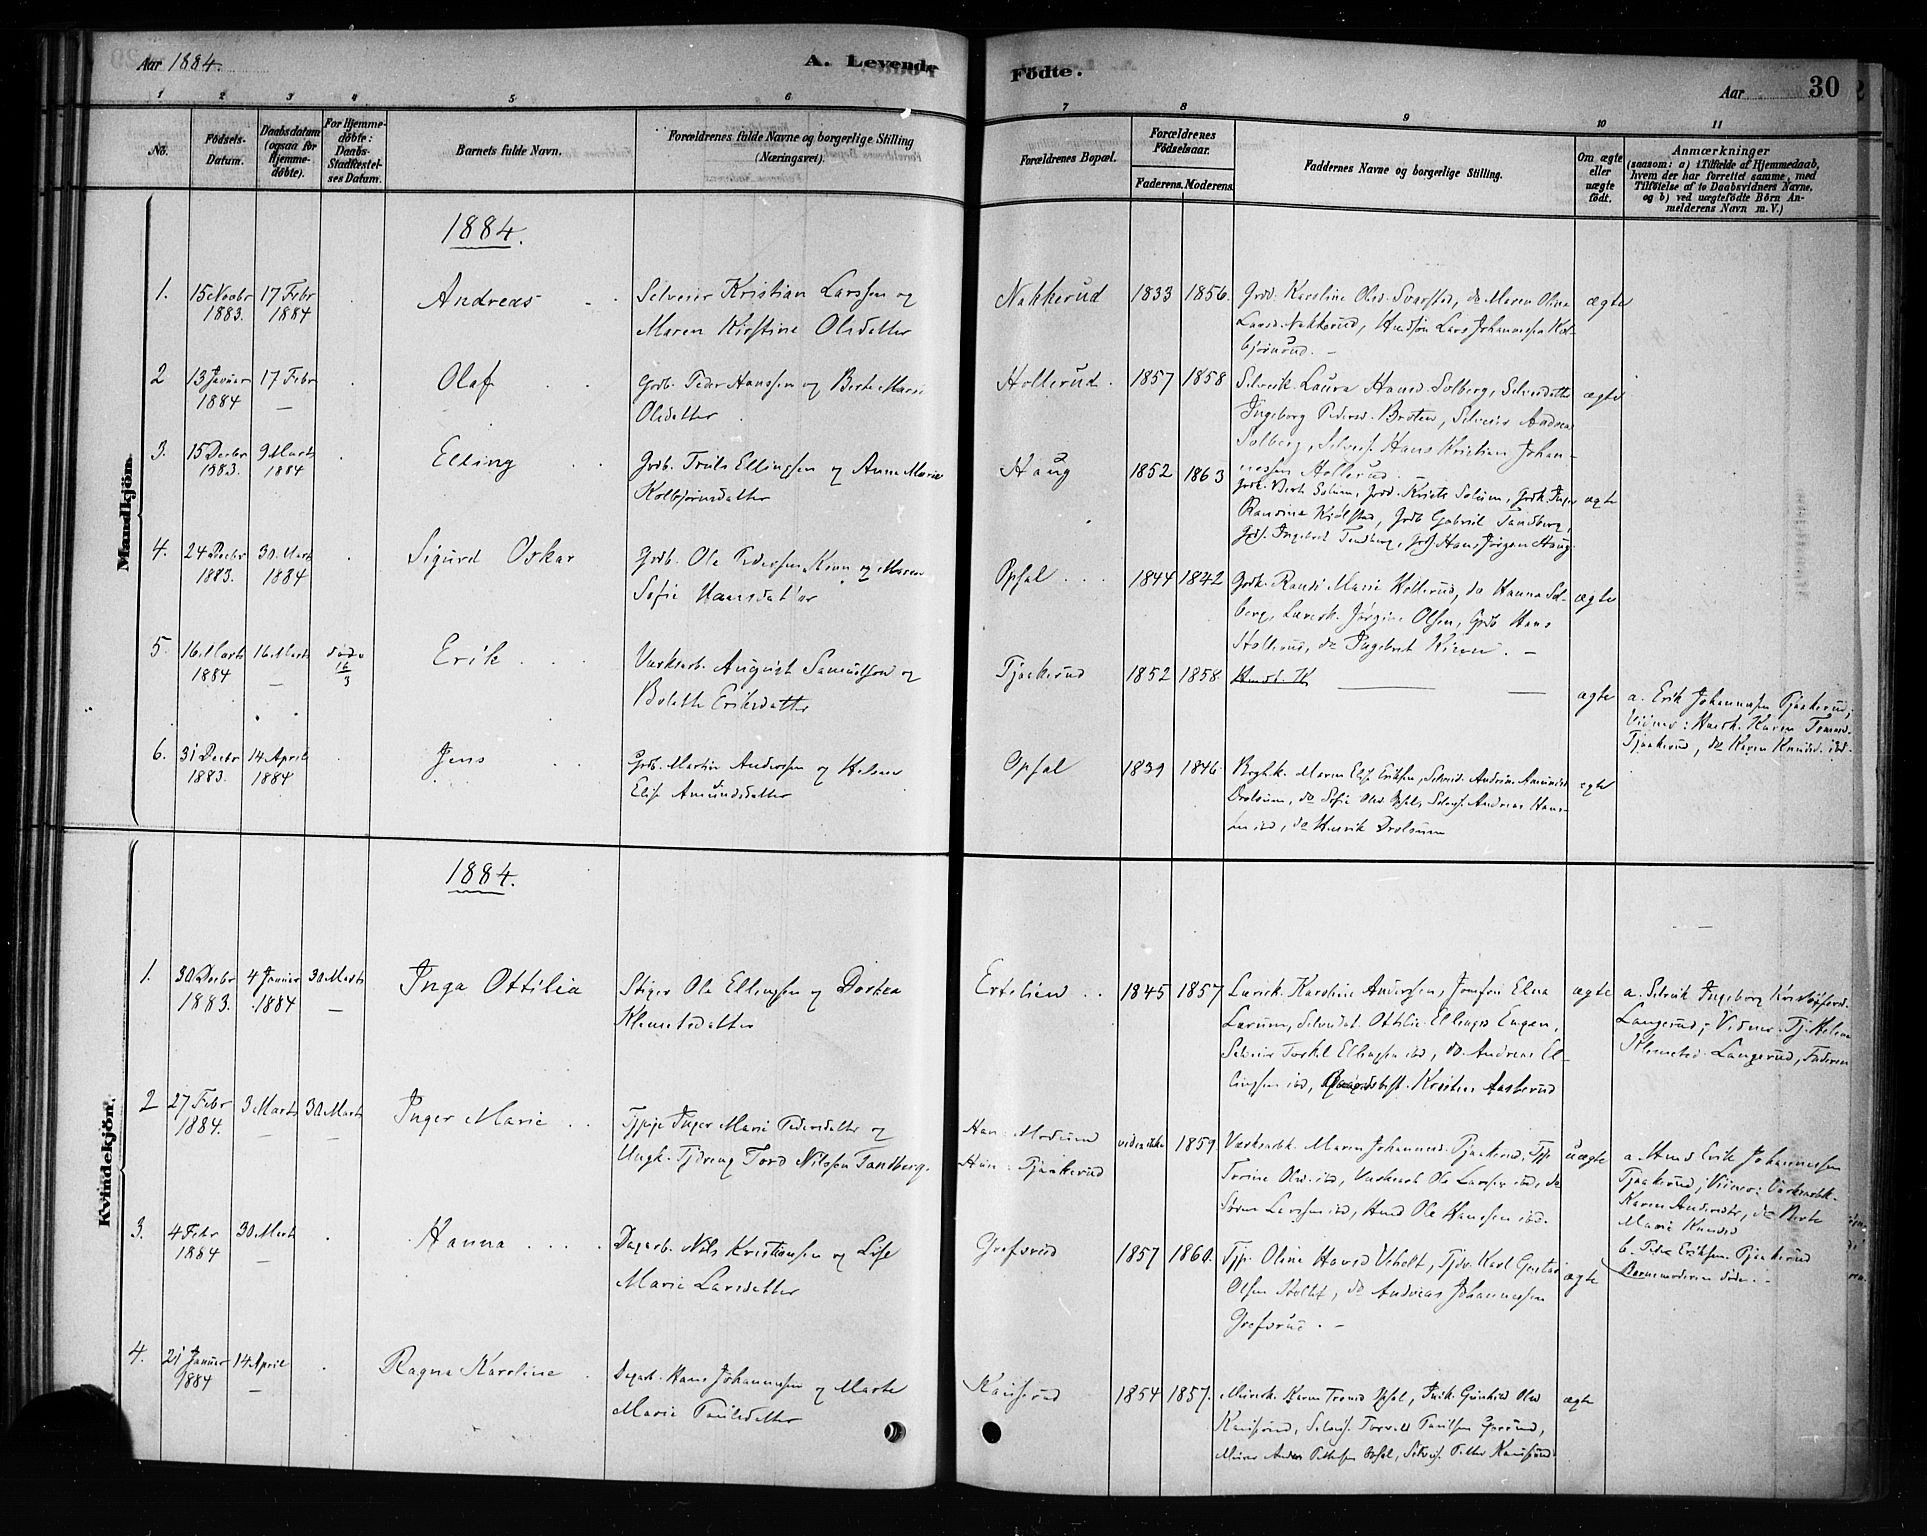 Aar 1884.
A. Levende
Födte.
Aar
30
1 2 3 4 5 6 7 8 9 10 11
No.
Födsels-
Datum.
Daabsdatum
(ogsaa for
Hjemme-
döbte).
For Hjemme-
döbte:
Daabs-
Stadfæstel-
ses Datum.
Barnets fulde Navn.
Forældrenes fulde Navne og borgerlige Stilling
(Næringsvei).
Forældrenes Bopæl.
Forældrenes
Födselsaar.
Faderens. Moderens.
Faddernes Navne og borgerlige Stilling.
Om ægte
eller
uægte
födt.
Anmærkninger
(saasom: a) i Tilfælde af Hjemmedaab,
hvem der har forrettet samme, med
Tilföielse af to Daabsvidners Navne,
og b) ved uægtefödte Börn An-
melderens Navn m. V.)
Mandkjön.
1884.
1. 15 Novbr 1883. 17 Febr 1884
Andreas
Selveier Kristian Larssen og
Maren Kirstine Olsdatter
Nakkerud 1833 1856.
Grdd. Karoline Olsd. Svarstad, do Maren Oline
Larsd. Nakkerud, Husmsøn Lars Johannessen Kol-
bjørnrud. –
ægte
2 13 Januar 1884 17 Febr –
Olaf
Grdb. Peder Hanssen og Berte Marie
Olsdatter
Hollerud. 1857 1858
Selveik. Laura Hansd. Solberg, Selveidatter
Ingeborg Pedersd. Bråten, Selveier Andreas
Solberg, Selveis. Hans Kristian Johan-
nessen Hollerud.
ægte
3. 15 Decbr 1883. 9 Marts 1884
Elling
Grdb. Truls Ellingsen og Anne Marie
Kolbjørnsdatter
Haug 1852 1863
Grdk. Berte Solum, Grdd. Solum, Grdk. Inger
Randine Kidelstad, Grdb Gabriel Tandberg,
Grds. Ingebret Tandberg, Grds. Hans Jørgen Haug
ægte
4. 24 Decbr 1883. 30 Marts 1884
Sigurd Oskar
Grdb. Ole Pedersen Kirun og Maren
Sofie Hansdatter
Opsal 1844 1842
Grdk. Randi Marie Hollerud, do Hanna Sol-
berg, Lærerk. Jørgine Olsen, Grdb Hans
Hollerud, do Ingebret Kirun. –
ægte
5. 16 Marts 1884 16 Marts – døde 16/3
Erik
Værksarb. August Samuelsson og
Bolette Eriksdatter
Tjaakerud 1852 1858.
ægte
a. Erik Johannessen Tjaakerud;
Vidner: Huusk. Karen Tomasd.
Tjaakerud, do Karen Knudsd. ibd.
6. 31 Decbr 1883. 14 April 1884
Jens
Grdb. Martin Anderssen og Helene
Elise Amundsdatter
Opsal 1839 1846.
Bryhk. Maren Elise Eriksen, Selveid. Andrine Amundsd.
Drolsum, do Sofie Olsd. Opsal, Selveis. Andreas Hans-
sen ibd, do Henrik Drolsum
ægte
Kvindekjön.
1884.
1. 30 Decbr 1883. 4 Januar 1884 30 Marts –
Inga Ottilia
Stiger Ole Ellingsen og Dorthea
Klemetsdatter
Ertelien 1845 1857
Lærerk. Karoline Anderssen, Jomfru Elna
Lærum, Selveidat. Ottilie Ellingsd Engen,
Selveier Torkel Ellingsen ibd, do Andreas El-
lingsen ibd, Kristian Aaskerud
ægte
a. Selveik Ingeborg Kristofersd.
Langerud; Vidner: Tj. Helene
Klemetsd. Langerud, Faderen
2 27 Febr 1884. 3 Marts – 30 Marts –
Inger Marie
Tjpige Inger Marie Pedersdatter og
Ungk. Tjdreng Tord Nilsson Tandberg.
Han: Modum
Hun: Tjaakerud
vides ikke 1859
Værksarbk. Maren Johannesd. Tjaakerud, Tjp
Torine Olsd. ibd, Værksarb Ole Larssen ibd, do
Søren Larssen ibd, Husmd Ole Hanssen ibd.
uægte
a. Husmd Erik Johannessen
Tjaakerud; Vidner: Værksarbk.
Karen Andersd., do Berte
Marie Knudsd
b. Peder Eriksen Tjaakerud
Barnemoderen døde. –
3. 4 Febr 1884 30 Marts –
Hanna
Dagarb. Nils Kristiansen og Lise
Marie Larsdatter
Grefsrud 1857 1860.
Tjp. Oline Hansd Veholt, Tjdr. Karl Gustav
Olsen Veholt, do Andreas Johannessen
Grefsrud. –
ægte
4. 21 Januar 1884 14 April –
Ragna Karoline
Dagarb. Hans Johannessen og Marte
Marie Paulsdatter
Kaisrud 1854 1857.
Murerk. Karen Tronsd Opsal, Inderk. Gunhild Olsd
Kaisrud, Selveis. Torvald Paulsen Grørud,
Murer Anders Pettersen Opsal, Selveis. Petter Kaisrud.
ægte